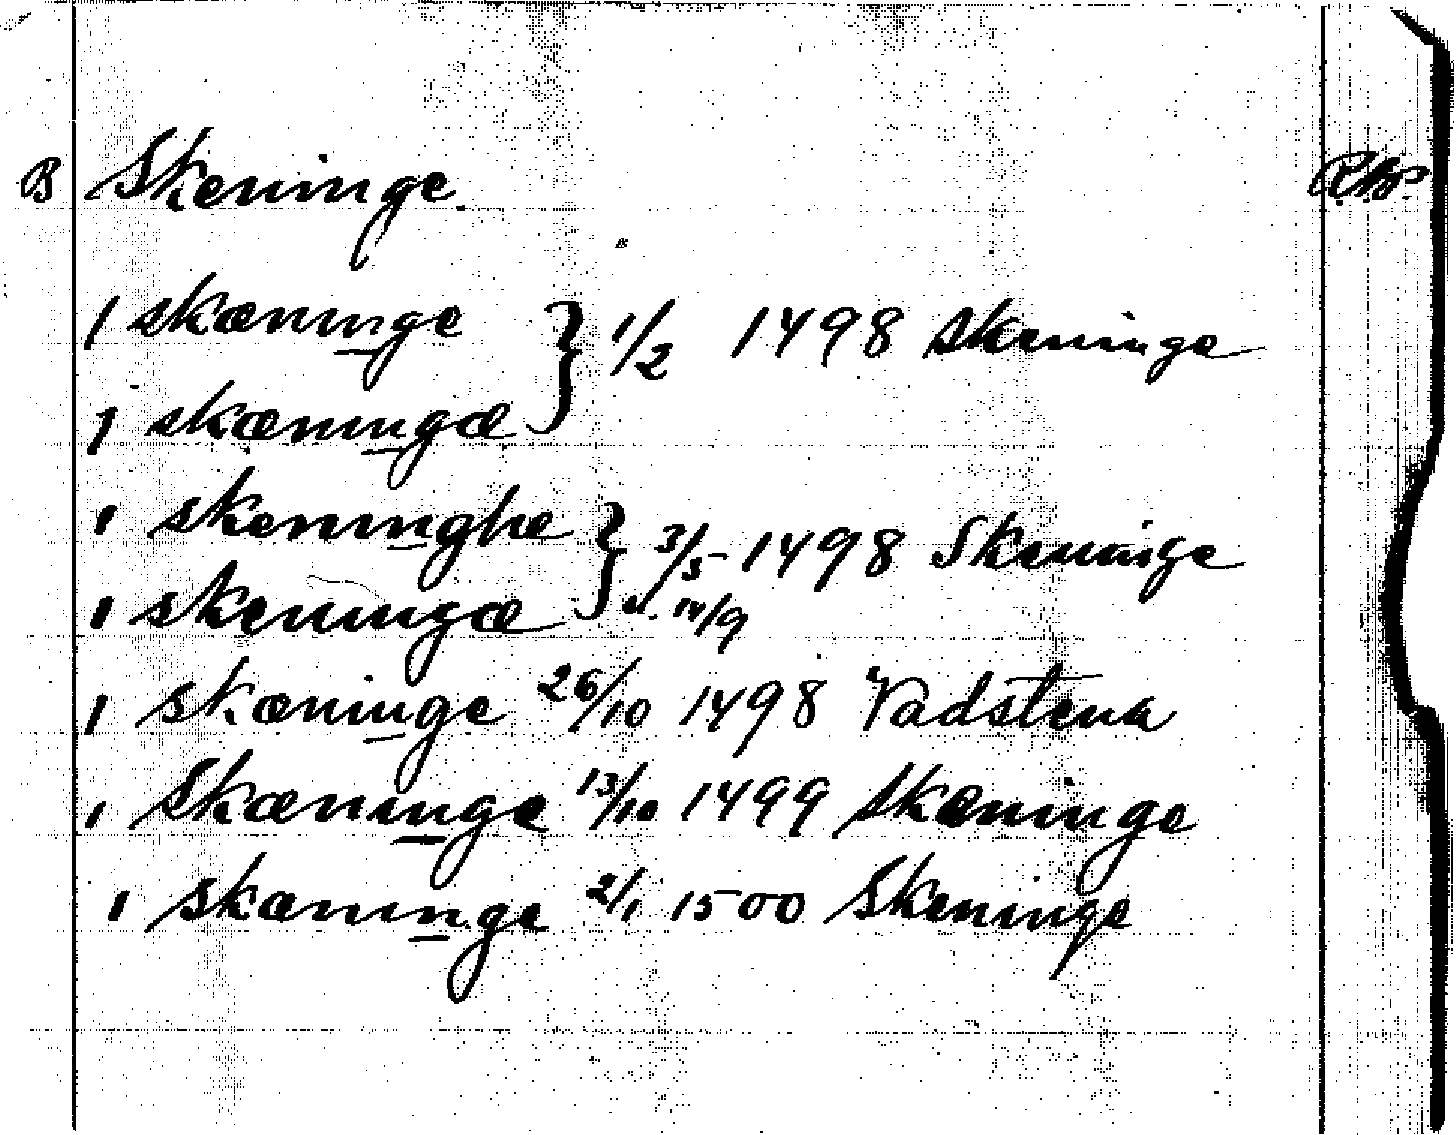 B Skeninge.
I skæninge } 1/2 1498 Skeninge
I skæningæ
I skeninghe } 3/5 1498 Skeninge
I skeningæ o. 14/9
I skæninge 26/10 1498 Vadstena
I Skæninge 13/10 1499 Skeninge
I skæninge 2/1 1500 Skeninge